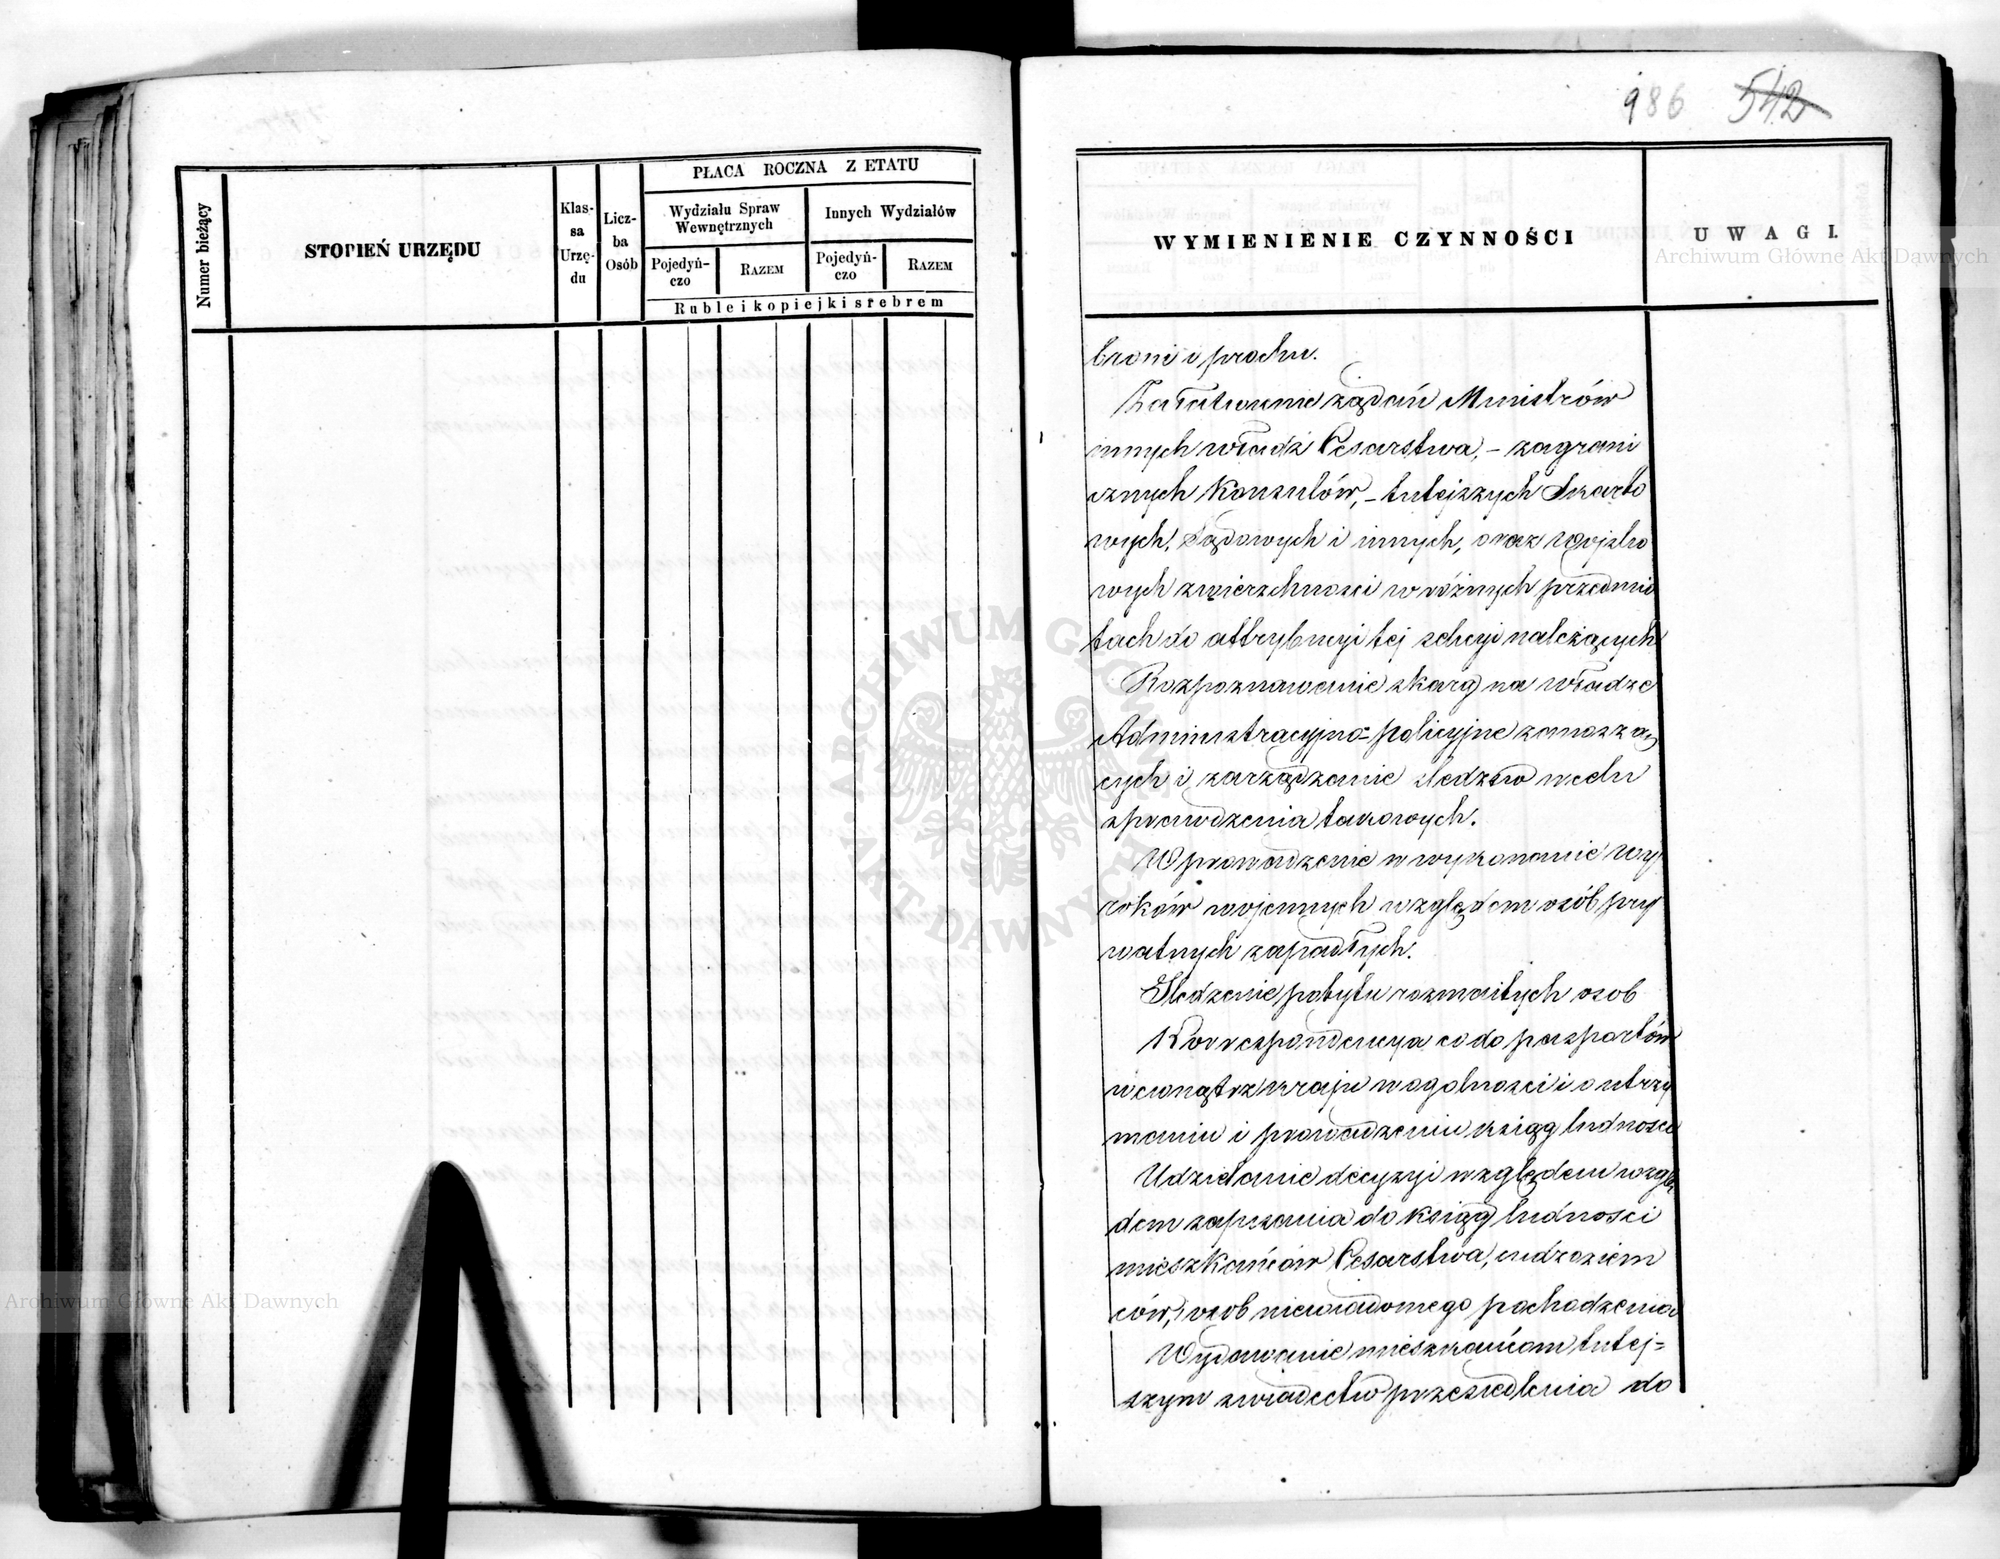 986 542
Numer bieżący
STOPIEŃ URZĘDU
Klas-
sa
Urzę-
du
Licz-
ba
Osób
PŁACA ROCZNA Z ETATU
Wydziału Spraw
Wewnętrznych
Innych Wydziałów
Pojedyń-
czo
RAZEM
Pojedyń-
czo
RAZEM
Ruble i kopiejki srebrem
WYMIENIENIE CZYNNOŚCI
UWAGI.
broni i prochu.
Załatwianie żądań Ministrów
innych władz Cesarstwa, – zagrani
cznych Konsulów, – tutejszych Skarbo
wych, Sądowych i innych, oraz Wojsko
wych zwierzchności w różnych przedmio
tach do attrybucyi tej sekcyi należących
Rozpoznawanie skarg na władze
Administracyjno-policyjne zanoszą
cych i zarządzanie śledztw w celu
sprawdzenia takowych.
Wprowadzenie w wykonanie wy
roków wojennych względem osób pry
watnych zapadłych.
Śledzenie pobytu rozmaitych osob
Korrespondencya co do paszportów
wewnątrz kraju w ogolności i o utrzy
maniu i prowadzeniu ksiąg ludności
Udzielanie decyzyi względem wzglę
dem zapisania do ksiąg ludności
mieszkańców Cesarstwa, cudzoziem
ców, osob niewiadomego pochodzenia
Wydawanie mieszkańcom tutej=
szym świadectw przesiedlenia do
Archiwum Główne Akt Dawnych
Archiwum Główne Akt Dawnych
ARCHIWUM GŁÓWNE AKT DAWNYCH